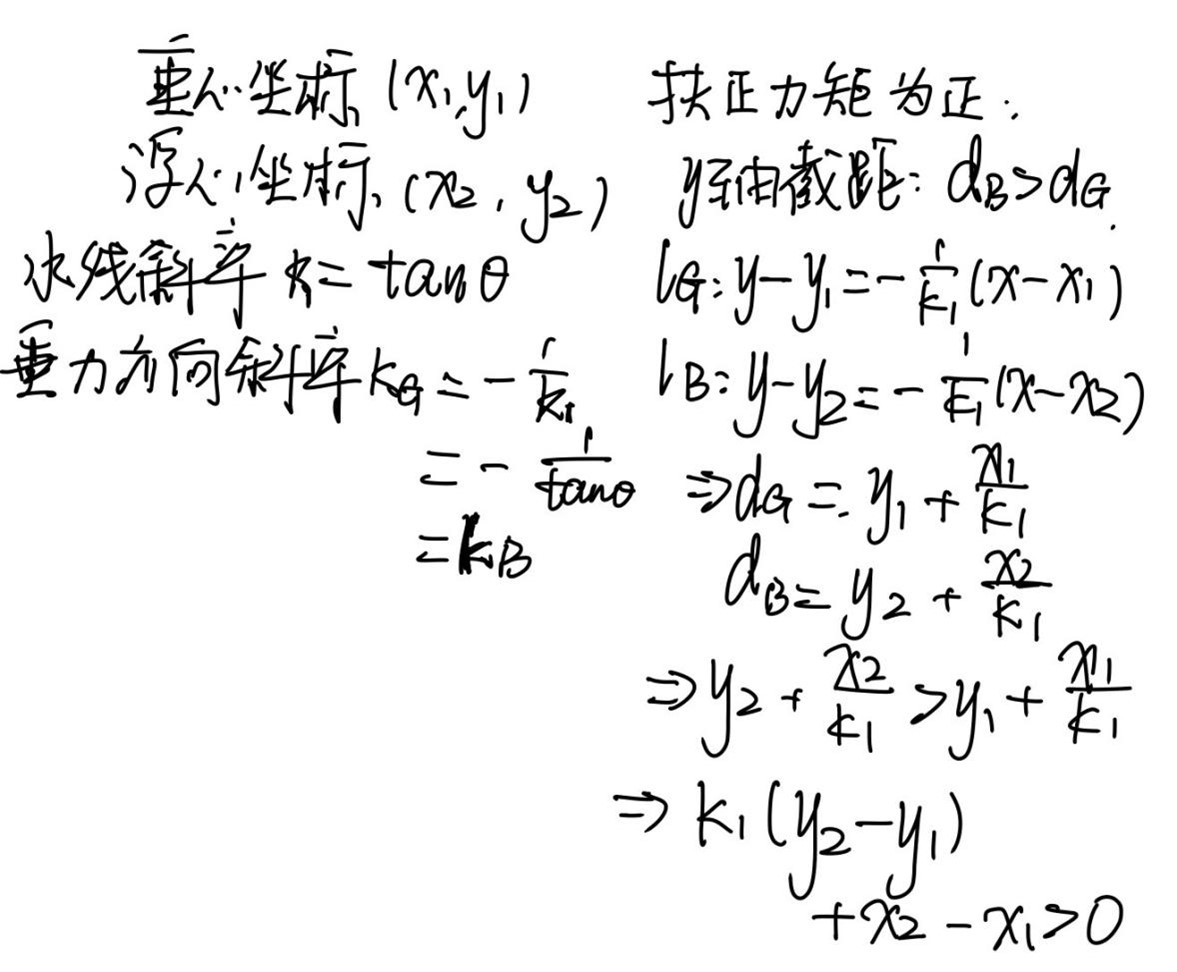 重心坐标 (x₁,y₁)
浮心坐标 (x₂, y₂)
水线斜率 k₁ = tanθ
重力方向斜率 k_G = -1/k₁
= -1/tanθ
= k_B
扶正力矩为正:
y轴截距: d_B > d_G
l_G: y-y₁ = -1/k₁(x-x₁)
l_B: y-y₂ = -1/k₁(x-x₂)
⇒ d_G = y₁ + x₁/k₁
d_B = y₂ + x₂/k₁
⇒ y₂ + x₂/k₁ > y₁ + x₁/k₁
⇒ k₁(y₂-y₁)
+ x₂ - x₁ > 0